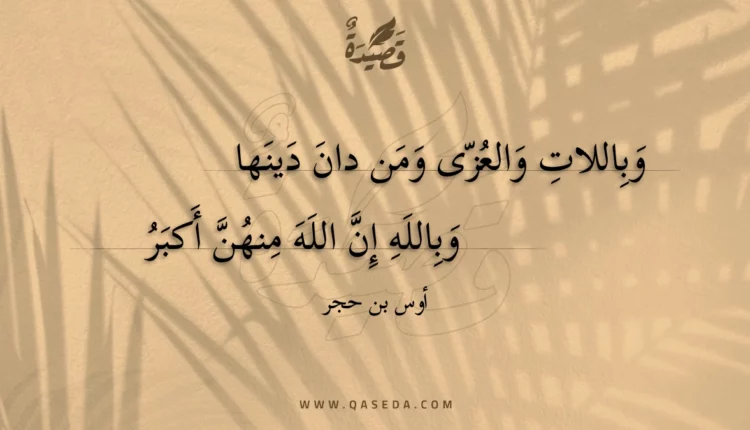 قَصِيدَةٌ
وَبِاللاتِ وَالعُزّى وَمَن دانَ دَينَها
وَبِاللَهِ إِنَّ اللَهَ مِنهُنَّ أَكبَرُ
أوس بن حجر
WWW.QASEDA.COM